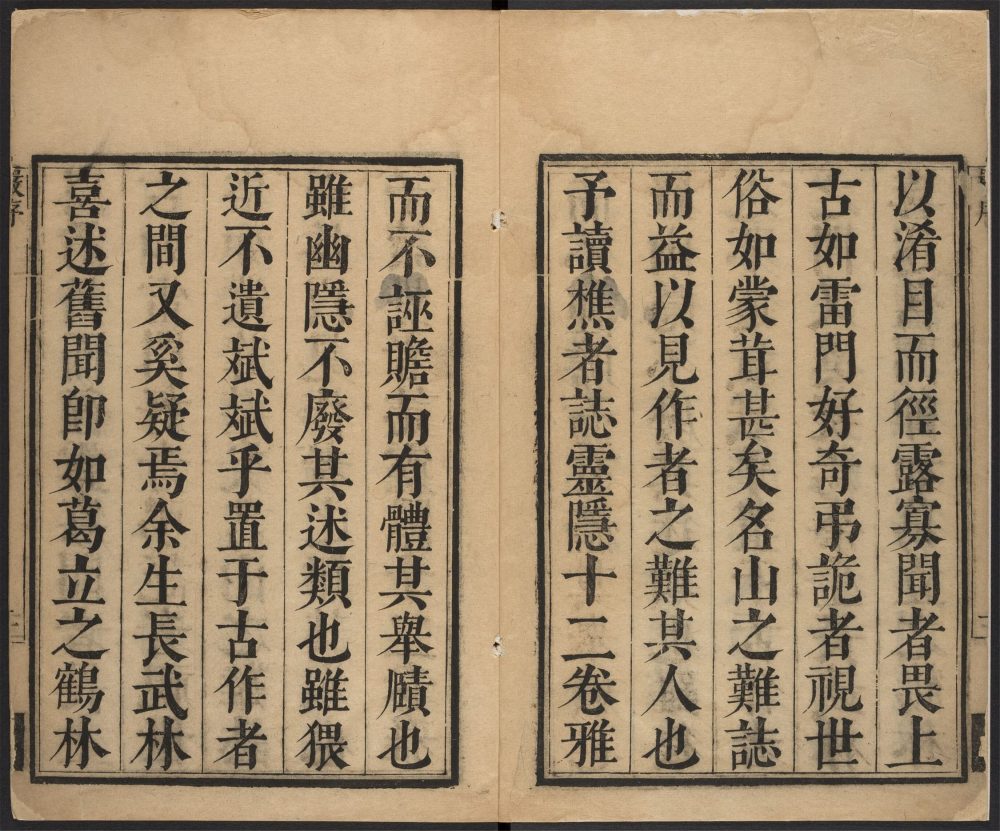 以淆目而徑露寡聞者畏上
古如雷門好奇弔詭者視世
俗如蒙茸甚矣名山之難誌
而益以見作者之難其人也
予讀樵者誌靈隱十二卷雅
而不誣贍而有體其舉賾也
雖幽隱不廢其述類也雖猥
近不遺斌斌乎置于古作者
之間又奚疑焉余生長武林
喜述舊聞即如葛立之鶴林